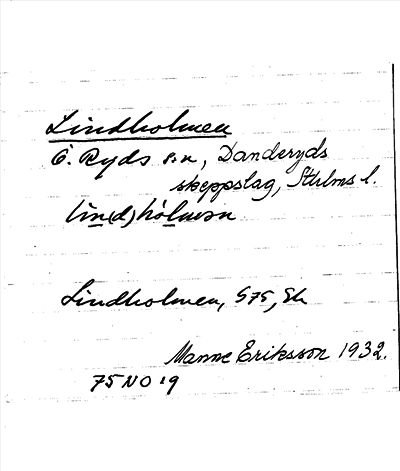 Lindholmen
Ö. Ryds s:n, Danderyds
skeppslag, Sthlms l.
lin(d)hòlmən
Lindholmen, G75, Sk
Manne Eriksson 1932.
75 NO 19